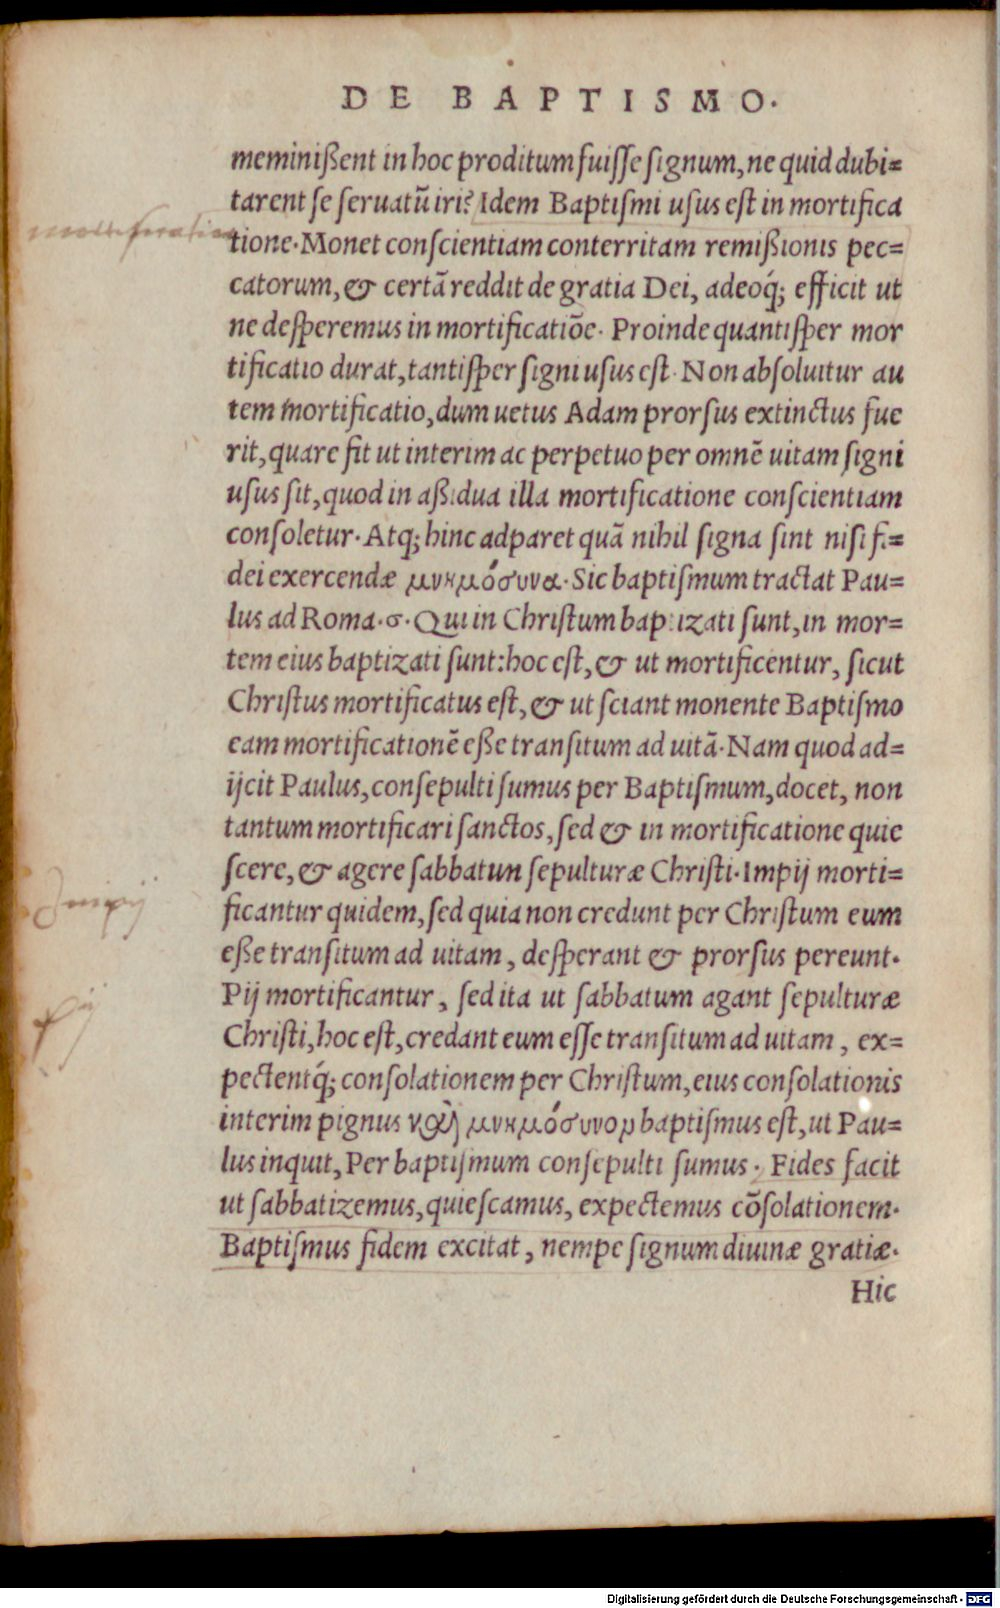 DE BAPTISMO.
meminißent in hoc proditum fuiſſe ſignum, ne quid dubi=
tarent ſe ſeruatũ iri? Idem Baptiſmi uſus eſt in mortifica
mortificatio
tione. Monet conſcientiam conterritam remißionis pec=
catorum, & certã reddit de gratia Dei, adeoq́; efficit ut
ne deſperemus in mortificatiõe. Proinde quantiſper mor
tificatio durat, tantiſper ſigni uſus eſt. Non abſoluitur au
tem mortificatio, dum uetus Adam prorſus extinctus fue
rit, quare fit ut interim ac perpetuo per omnẽ uitam ſigni
uſus ſit, quod in aßidua illa mortificatione conſcientiam
conſoletur. Atq; hinc adparet quã nihil ſigna ſint niſi fi=
dei exercendæ μνημόσυνα. Sic baptiſmum tractat Pau=
lus ad Roma. σ. Qui in Chriſtum baptizati ſunt, in mor=
tem eius baptizati ſunt: hoc eſt, & ut mortificentur, ſicut
Chriſtus mortificatus eſt, & ut ſciant monente Baptiſmo
eam mortificationẽ eße tranſitum ad uitã. Nam quod ad=
ijcit Paulus, conſepulti ſumus per Baptiſmum, docet, non
tantum mortificari ſanctos, ſed & in mortificatione quie
ſcere, & agere ſabbatun ſepulturæ Chriſti. Impij morti=
Impij
ficantur quidem, ſed quia non credunt per Chriſtum eum
eße tranſitum ad uitam, deſperant & prorſus pereunt.
Pij mortificantur, ſed ita ut ſabbatum agant ſepulturæ
pij
Chriſti, hoc eſt, credant eum eſſe tranſitum ad uitam, ex=
pectentq́; conſolationem per Chriſtum, eius conſolationis
interim pignus καὶ μνημόσυνον baptiſmus eſt, ut Pau=
lus inquit, Per baptiſmum conſepulti ſumus. Fides facit
ut ſabbatizemus, quieſcamus, expectemus cõſolationem.
Baptiſmus fidem excitat, nempe ſignum diuinæ gratiæ.
Hic
Digitalisierung gefördert durch die Deutsche Forschungsgemeinschaft - DFG